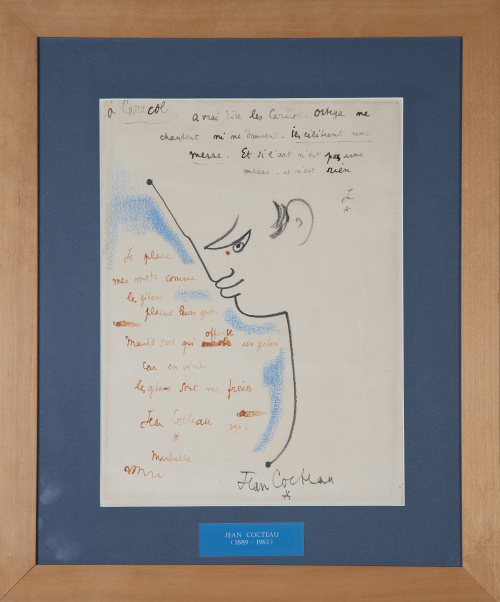 à Caracol
a vrai dire les Caracol. Ortega ne
chantent ni ne dansent. ils célèbrent une
messe. Et si l'art n'est pas une
messe. il n'est rien
J
*
Je place
mes mots comme
les gitans
placent leurs
offense
Maudit soit qui un gitan
car en vérité
les gitans sont mes frères
Jean Cocteau
1961
*
Marbella
Jean Cocteau
*
JEAN COCTEAU
(1889 - 1963)